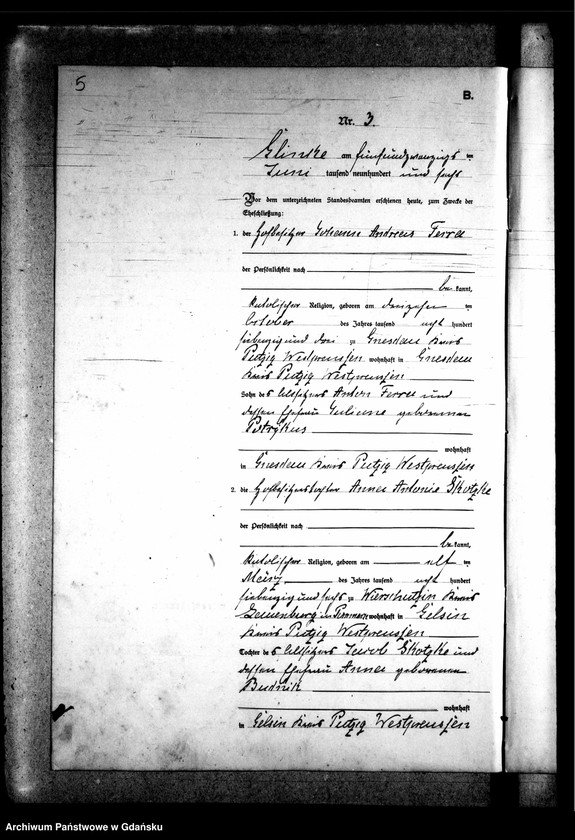 5
B.
Nr. 3.
am fünfundzwanzigsten
Juni tausend neunhundert und sechs
Vor dem unterzeichneten Standesbeamten erschienen heute, zum Zwecke der
Eheschließung:
1. der Hofbesitzer Johann Andreas
der Persönlichkeit nach
be kannt,
katolischer Religion, geboren am dreizehn ten
October des Jahres tausend acht hundert
siebenzig und drei zu Gnesdau Kreis
Putzig Westpreussen wohnhaft in Gnesdau
Kreis Putzig Westpreussen
Sohn des Altsitzers Anton und
dessen Ehefrau Juliane geborenen
wohnhaft
in Gnesdau Kreis Putzig Westpreussen
2. die Hofbesitzerstochter Anna Antonie Skotzke
der Persönlichkeit nach
be kannt,
katolischer Religion, geboren am elf ten
März des Jahres tausend acht hundert
siebenzig und sechs zu Wierschutzin Kreis
Lauenburg in Pommern wohnhaft in Gelsin
Kreis Putzig Westpreussen
Tochter des Altsitzers Jacob Skotzke und
dessen Ehefrau Anna geborenen
Budnik
wohnhaft
in Gelsin Kreis Putzig Westpreussen
Archiwum Państwowe w Gdańsku